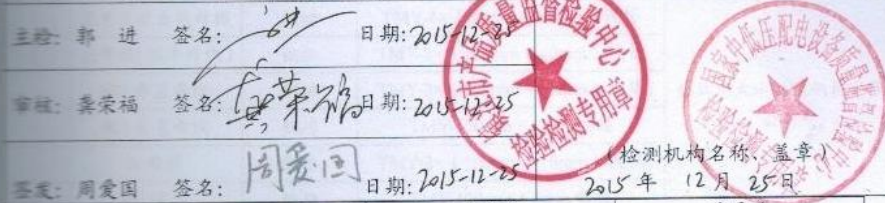 主检：郭 进 签名： 进 日期：2015-12-25
审核：龚荣福 签名：龚荣福 日期：2015-12-25
签发：周爱国 签名：周爱国 日期：2015-12-25
市产品质量监督检验中心
检验检测专用章
国家中低压配电设备质量监督检验中心
（检测机构名称、盖章）
2015年 12月 25日